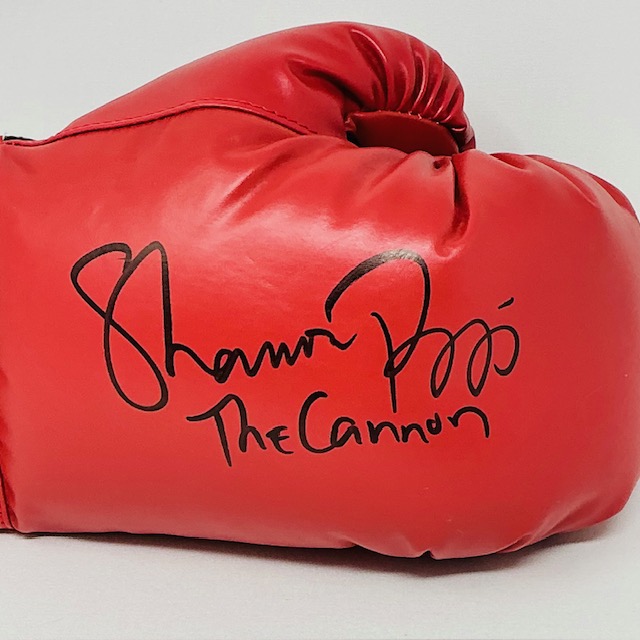 Shannon Briggs
The Cannon